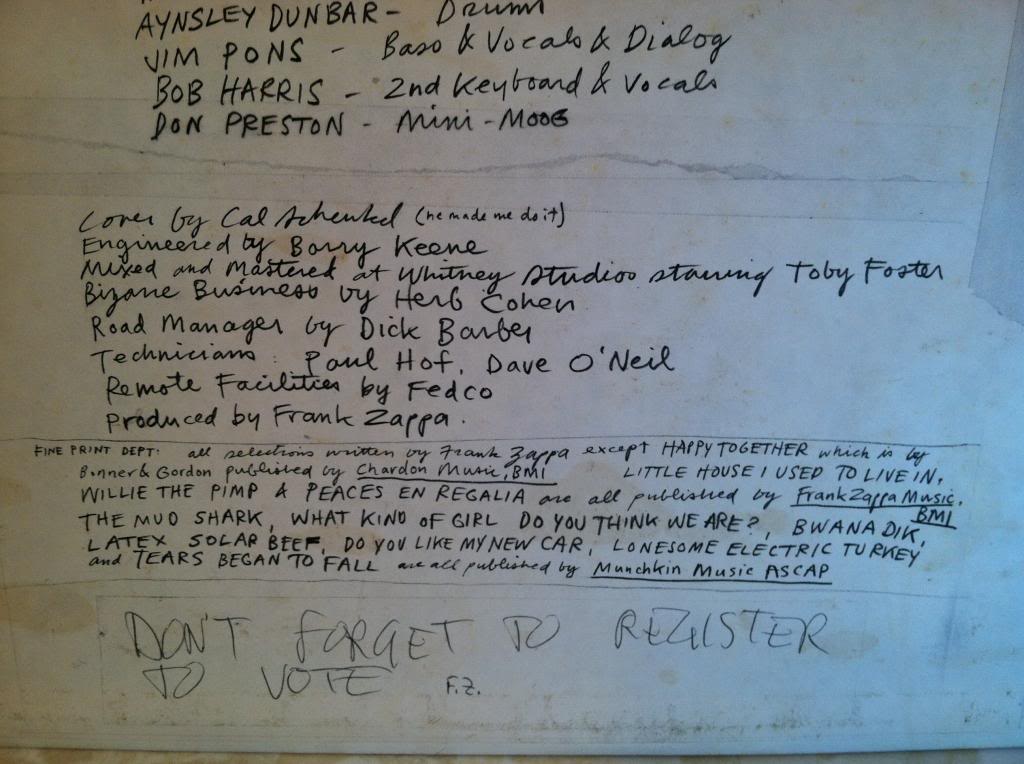 AYNSLEY DUNBAR - Drums
JIM PONS - Bass & Vocals & Dialog
BOB HARRIS - 2nd Keyboard & Vocals
DON PRESTON - Mini-MOOG
Cover by Cal Schenkel (he made me do it)
Engineered by Barry Keene
Mixed and Mastered at Whitney Studios starring Toby Foster
Bizarre Business by Herb Cohen
Road Manager by Dick Barber
Technicians: Paul Hof, Dave O'Neil
Remote Facilities by Fedco
Produced by Frank Zappa.
FINE PRINT DEPT: all selections written by Frank Zappa except HAPPY TOGETHER which is by
Bonner & Gordon published by Chardon Music, BMI LITTLE HOUSE I USED TO LIVE IN,
WILLIE THE PIMP & PEACES EN REGALIA are all published by Frank Zappa Music,
BMI
THE MUD SHARK, WHAT KIND OF GIRL DO YOU THINK WE ARE?, BWANA DIK,
LATEX SOLAR BEEF, DO YOU LIKE MY NEW CAR, LONESOME ELECTRIC TURKEY
and TEARS BEGAN TO FALL are all published by Munchkin Music ASCAP
DON'T FORGET TO REGISTER
TO VOTE F.Z.